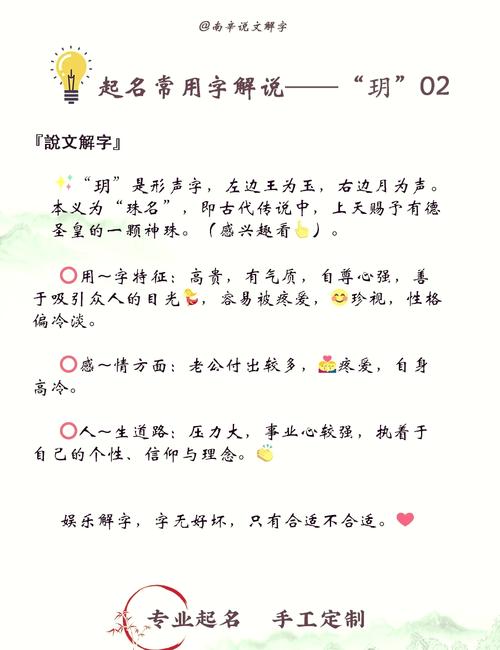 @南辛说文解字
起名常用字解说——“玥”02
『說文解字』
“玥”是形声字，左边王为玉，右边月为声。
本义为“珠名”，即古代传说中，上天赐予有德
圣皇的一颗神珠。（感兴趣看👆）。
⭕用～字特征：高贵，有气质，自尊心强，善
于吸引众人的目光💃，容易被疼爱，😊珍视，性格
偏冷淡。
⭕感～情方面：老公付出较多，💑疼爱，自身
高冷。
⭕人～生道路：压力大，事业心较强，执着于
自己的个性、信仰与理念。👏
娱乐解字，字无好坏，只有合适不合适。❤
专业起名 手工定制